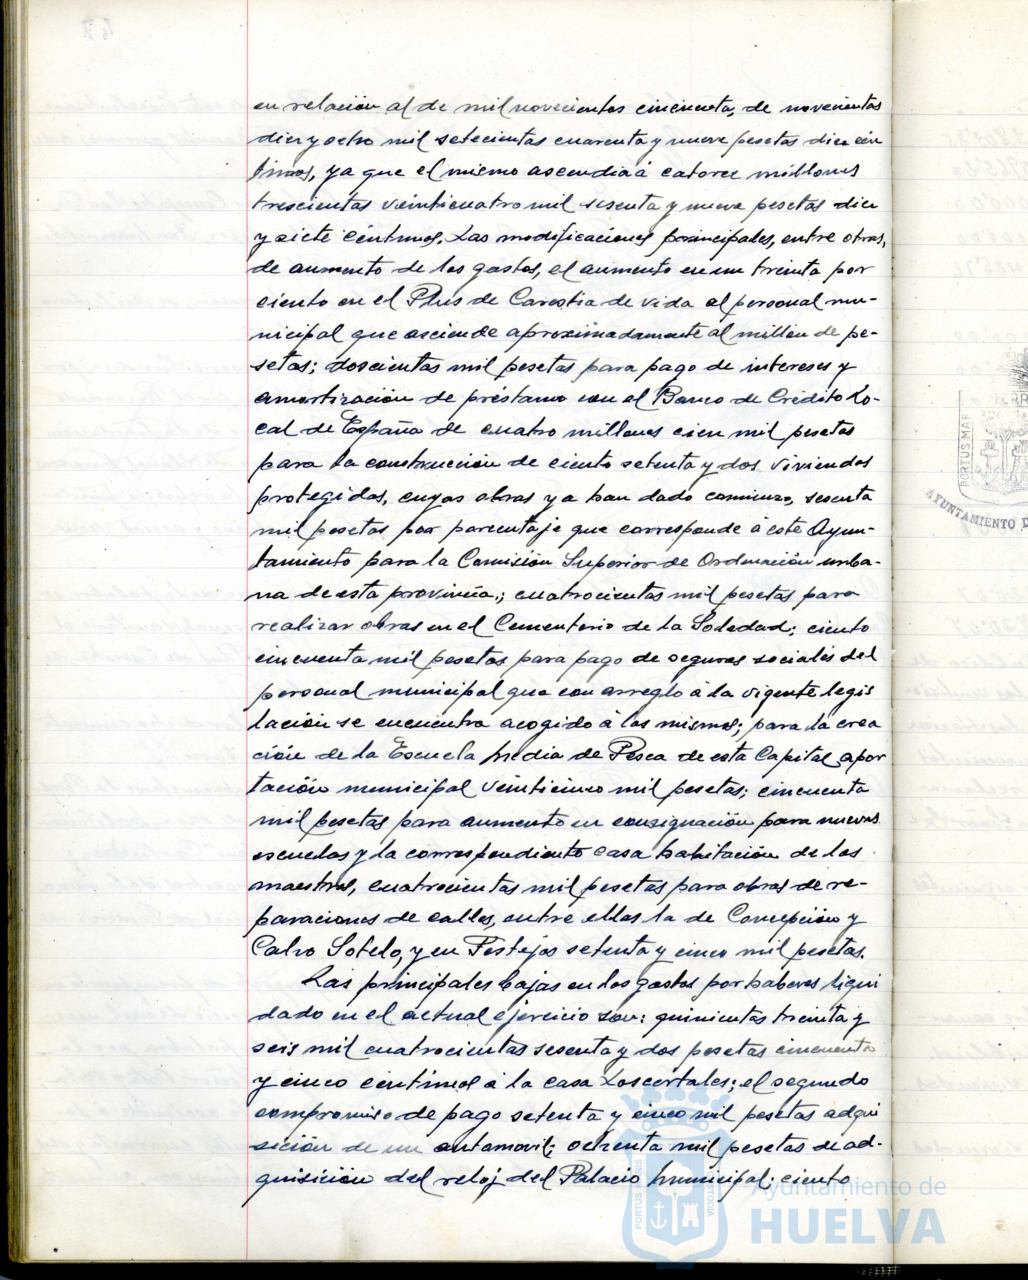 en relación al de mil novecientos cincuenta, de novecientas
diez y ocho mil setecientas cuarenta y nueve pesetas diez cén
timos, ya que el mismo ascendia á catorce millones
trescientas veinticuatro mil sesenta y nueve pesetas diez
y siete céntimos. Las modificaciones principales, entre otras,
de aumento de los gastos, el aumento en un treinta por
ciento en el Plus de Carestia de vida al personal mu-
nicipal que asciende aproximadamente al millon de pe-
setas; doscientas mil pesetas para pago de intereses y
amortización de préstamo con el Banco de Crédito Lo-
cal de España de cuatro millones cien mil pesetas
para la construcción de ciento setenta y dos viviendas
protegidas, cuyas obras ya han dado comienzo, sesenta
mil pesetas por porcentaje que corresponde á este Ayun-
tamiento para la Comisión Superior de Ordenación urba-
na de esta provincia; cuatrocientas mil pesetas para
realizar obras en el Cementerio de la Soledad; ciento
cincuenta mil pesetas para pago de seguros sociales del
personal municipal que con arreglo á la vigente legis
lación se encuentra acogido á los mismos; para la crea
ción de la Escuela Media de Pesca de esta Capital apor
tación municipal veinticinco mil pesetas; cincuenta
mil pesetas para aumento en consignación para nuevas
escuelas y la correspondiente casa habitación de los
maestros, cuatrocientas mil pesetas para obras de re-
paraciones de calles, entre ellas la de Concepción y
Calvo Sotelo, y en Festejos setenta y cinco mil pesetas.
Las principales bajas en los gastos por haberes liqui
dado en el actual ejercicio son: quinientas treinta y
seis mil cuatrocientas sesenta y dos pesetas cincuenta
y cinco centimos á la casa Loscertales; el segundo
compromiso de pago setenta y cinco mil pesetas adqui
sición de un automovil; ochenta mil pesetas de ad-
quisición del reloj del Palacio Municipal; ciento
PORTUS MAR
AYUNTAMIENTO D
Ayuntamiento de
HUELVA